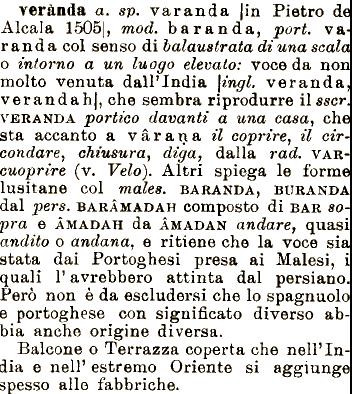 verànda a. sp. varanda |in Pietro de
Alcala 1505|, mod. baranda, port. va-
randa col senso di balaustrata di una scala
o intorno a un luogo elevato: voce da non
molto venuta dall'India |ingl. veranda,
verandah|, che sembra riprodurre il sscr.
VERANDA portico davanti a una casa, che
sta accanto a vâraṇa il coprire, il cir-
condare, chiusura, diga, dalla rad. VAR-
cuoprire (v. Velo). Altri spiega le forme
lusitane col males. BARANDA, BURANDA
dal pers. BARÂMADAH composto di BAR so-
pra e ÂMADAH da ÂMADAN andare, quasi
andito o andana, e ritiene che la voce sia
stata dai Portoghesi presa ai Malesi, i
quali l'avrebbero attinta dal persiano.
Però non è da escludersi che lo spagnuolo
e portoghese con significato diverso ab-
bia anche origine diversa.
Balcone o Terrazza coperta che nell'In-
dia e nell'estremo Oriente si aggiunge
spesso alle fabbriche.